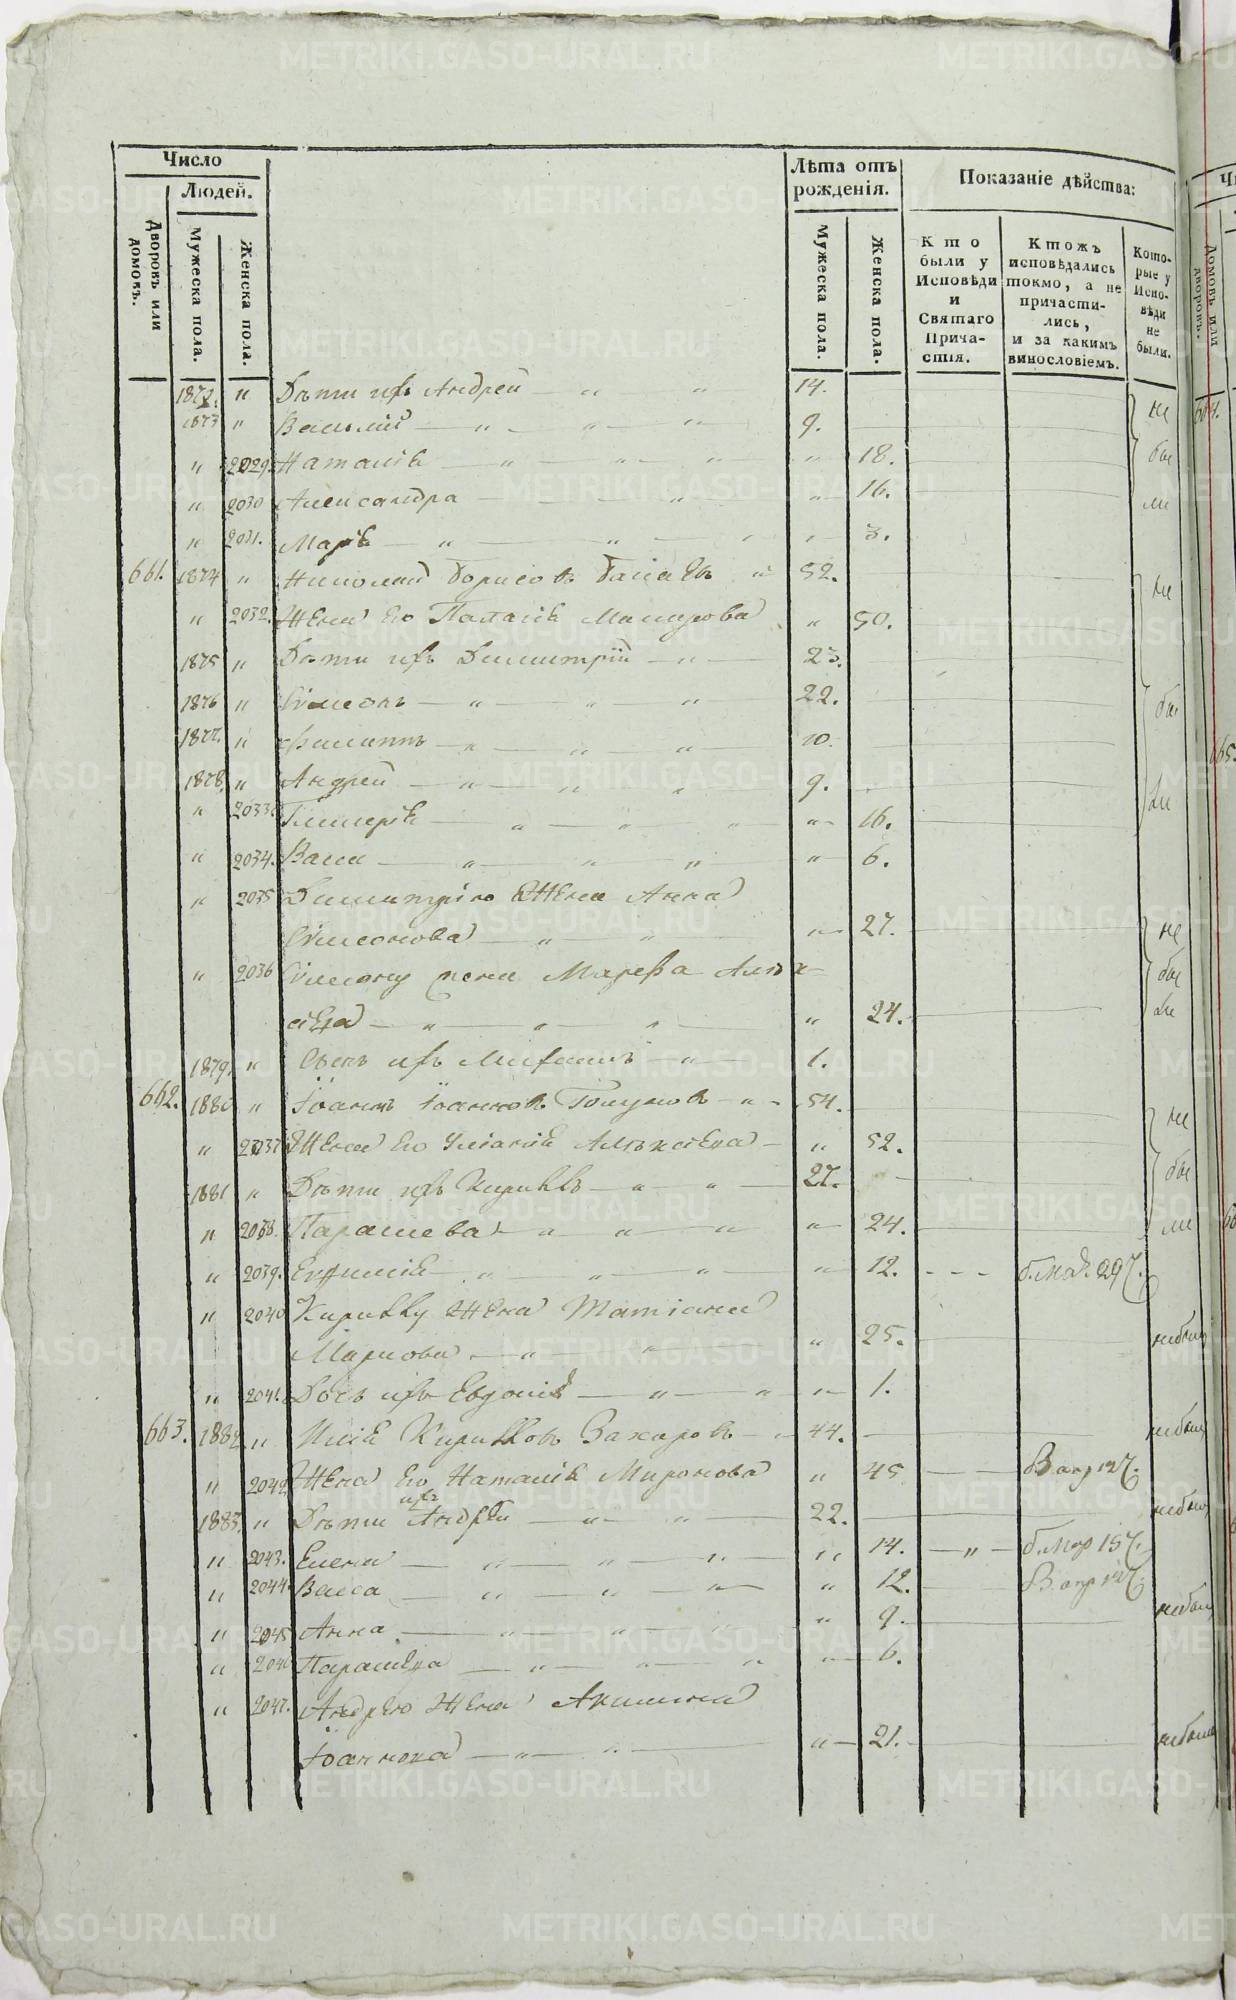 Число
Людей.
Дворовъ или домовъ.
Мужеска пола.
Женска пола.
Лѣта отъ рожденія.
Мужеска пола.
Женска пола.
Показаніе дѣйства:
Кто были у Исповѣди и Святаго Причастія.
Ктожъ исповѣдались токмо, а не причастились, и за какимъ винословіемъ.
Которые у Исповѣди не были.
1872. " Дѣти ихъ Андрей " " 14.
1873 " Василій " " " 9.
" 2029. Наталія " " " " 18.
" 2030 Александра " " 16.
" 2031. Марія " " " " 3.
не
бы
ли
661. 1874 " Николай Борисовъ " 52.
" 2032. Жена его Палагія " 50.
1875 " Дѣти ихъ Димитрій " 23.
1876 " Симеонъ " " " 22.
1877. " Филиппъ " " " 10.
1878. " Андрей " " " 9.
" 2033. Гликерія " " " " 16.
" 2034. Васса " " " " 6.
не
бы
ли
" 2035 Димитрію Жена Анна
Симеонова " " " 27.
" 2036 Симеону жена Марѳа Алек
сѣева " " " " 24.
не
бы
ли
1879. " Сынъ ихъ Михаилъ " 1.
662. 1880 " Іоаннъ Іоанновъ " 54.
" 2037 Жена его Уліанія Алексѣева " 52.
1881 " Дѣти ихъ Кириллъ " " 27.
" 2038. Параскева " " " " 24.
не
бы
ли
" 2039. Евѳимія " " " " 12. 29
" 2040 Кириллу Жена Татіана
Маркова " " " 25. небыли
" 2041. Дочь ихъ Евдокія " " " 1.
663. 1882 " Илія Кирилловъ Захаровъ " 44. небыли
" 2042 Жена его Наталія Миронова " 45
1883. " Дѣти ихъ Андрей " " 22. небыли
" 2043. Елена " " " " 14. " 15
" 2044. Васса " " " " 12.
" 2045 Анна " " " " 9. небыли
" 2046 Параскева " " " " 6.
" 2047. Андрею Жена Акилина
Іоаннова " " " 21. небыли
METRIKI.GASO-URAL.RU